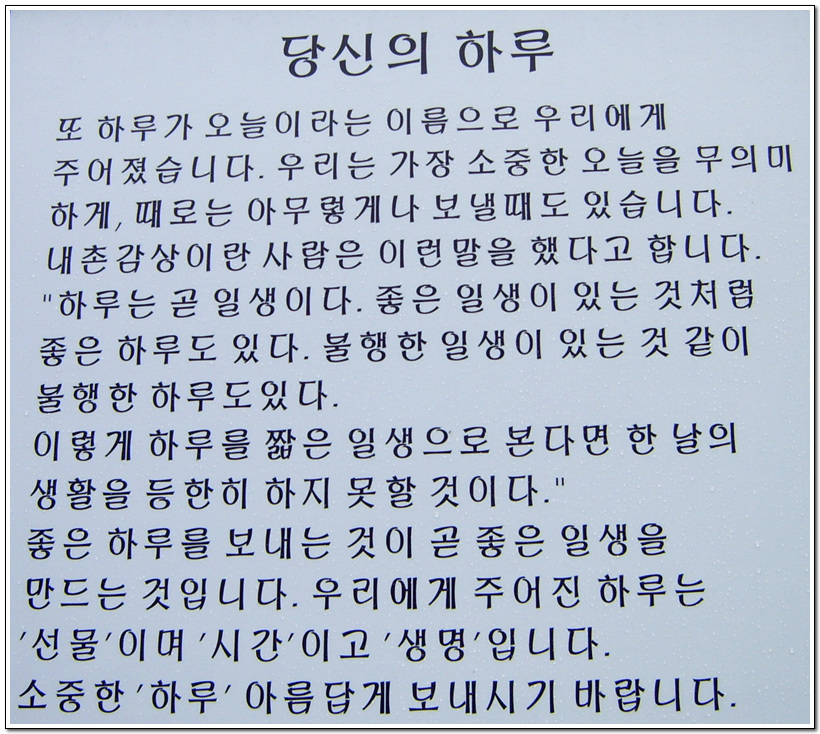 당신의 하루
또 하루가 오늘이라는 이름으로 우리에게
주어졌습니다. 우리는 가장 소중한 오늘을 무의미
하게, 때로는 아무렇게나 보낼때도 있습니다.
내촌감상이란 사람은 이런말을 했다고 합니다.
"하루는 곧 일생이다. 좋은 일생이 있는 것처럼
좋은 하루도 있다. 불행한 일생이 있는 것 같이
불행한 하루도있다.
이렇게 하루를 짧은 일생으로 본다면 한 날의
생활을 등한히 하지 못할 것이다."
좋은 하루를 보내는 것이 곧 좋은 일생을
만드는 것입니다. 우리에게 주어진 하루는
'선물'이며 '시간'이고 '생명'입니다.
소중한 '하루' 아름답게 보내시기 바랍니다.